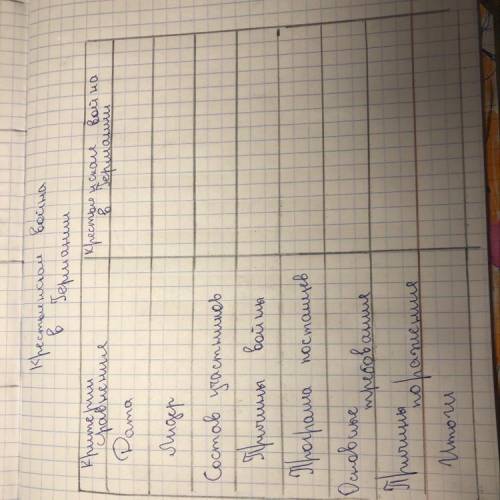 Крестьянская война
в Германии
Критерии
сравнения
Крестьянская война
в Германии
Дата
Лидер
Состав участников
Причины войны
Програма постанцев
Основные
требования
Причины
поражения
Итоги